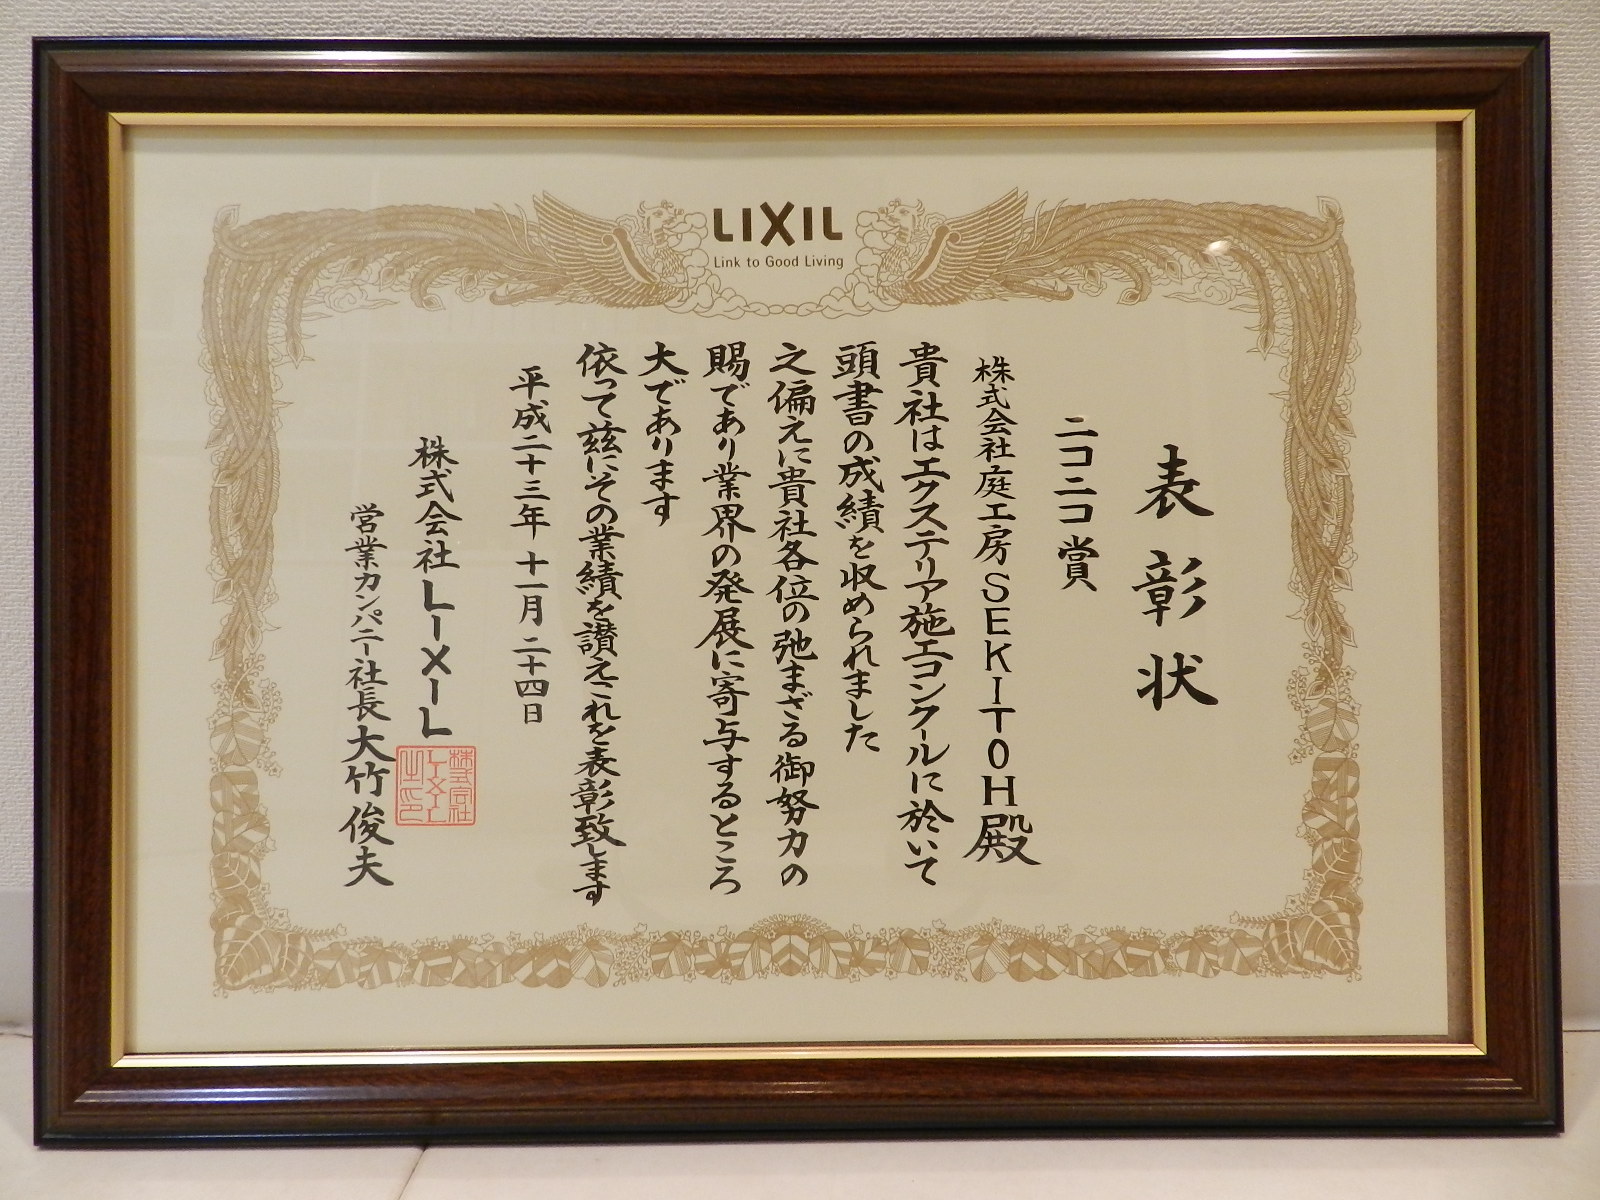 LIXIL
Link to Good Living
表彰状
ニコニコ賞
株式会社庭工房SEKITOH殿
貴社はエクステリア施工コンクールに於いて
頭書の成績を収められました
之偏えに貴社各位の弛まざる御努力の
賜であり業界の発展に寄与するところ
大であります
依って茲にその業績を讃えこれを表彰致します
平成二十三年十一月二十四日
株式会社LIXIL
営業カンパニー社長大竹俊夫
株式会社
LIXIL
之印